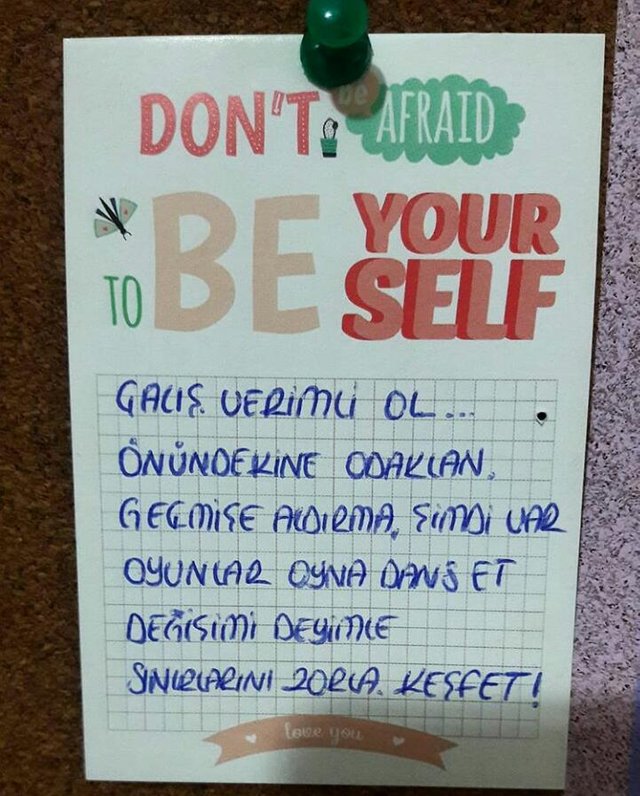 DON'T be AFRAID
TO BE YOUR
SELF
ÇALIŞ. VERİMLİ OL...
ÖNÜNDEKİNE ODAKLAN.
GEÇMİŞE ALDIRMA, ŞİMDİ VAR
OYUNLAR OYNA DANS ET
DEĞİŞİMİ DEYİMLE
SINIRLARINI ZORLA. KEŞFET!
love you